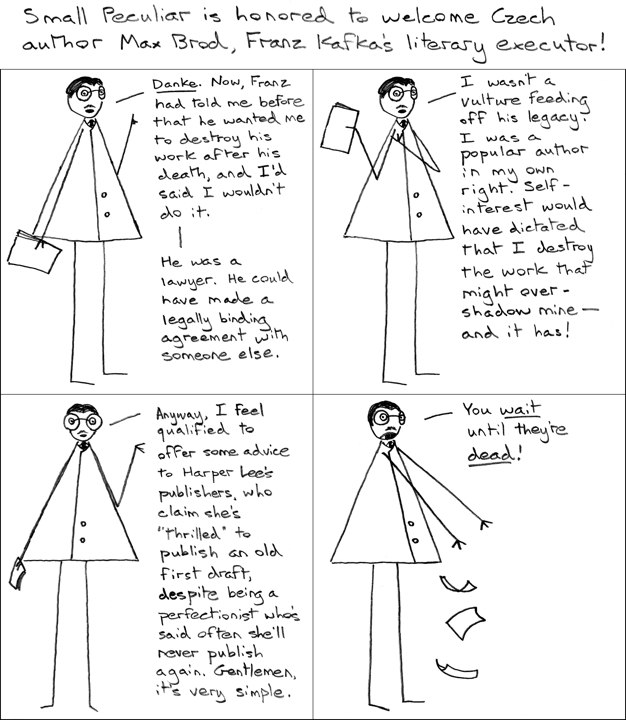 Small Peculiar is honored to welcome Czech
author Max Brod, Franz Kafka's literary executor!
Danke. Now, Franz
had told me before
that he wanted me
to destroy his
work after his
death, and I'd
said I wouldn't
do it.
He was a
lawyer. He could
have made a
legally binding
agreement with
someone else.
I wasn't a
vulture feeding
off his legacy.
I was a
popular author
in my own
right. Self-
interest would
have dictated
that I destroy
the work that
might over-
shadow mine—
and it has!
Anyway, I feel
qualified to
offer some advice
to Harper Lee's
publishers, who
claim she's
"thrilled" to
publish an old
first draft,
despite being a
perfectionist who's
said often she'll
never publish
again. Gentlemen,
it's very simple.
You wait
until they're
dead!